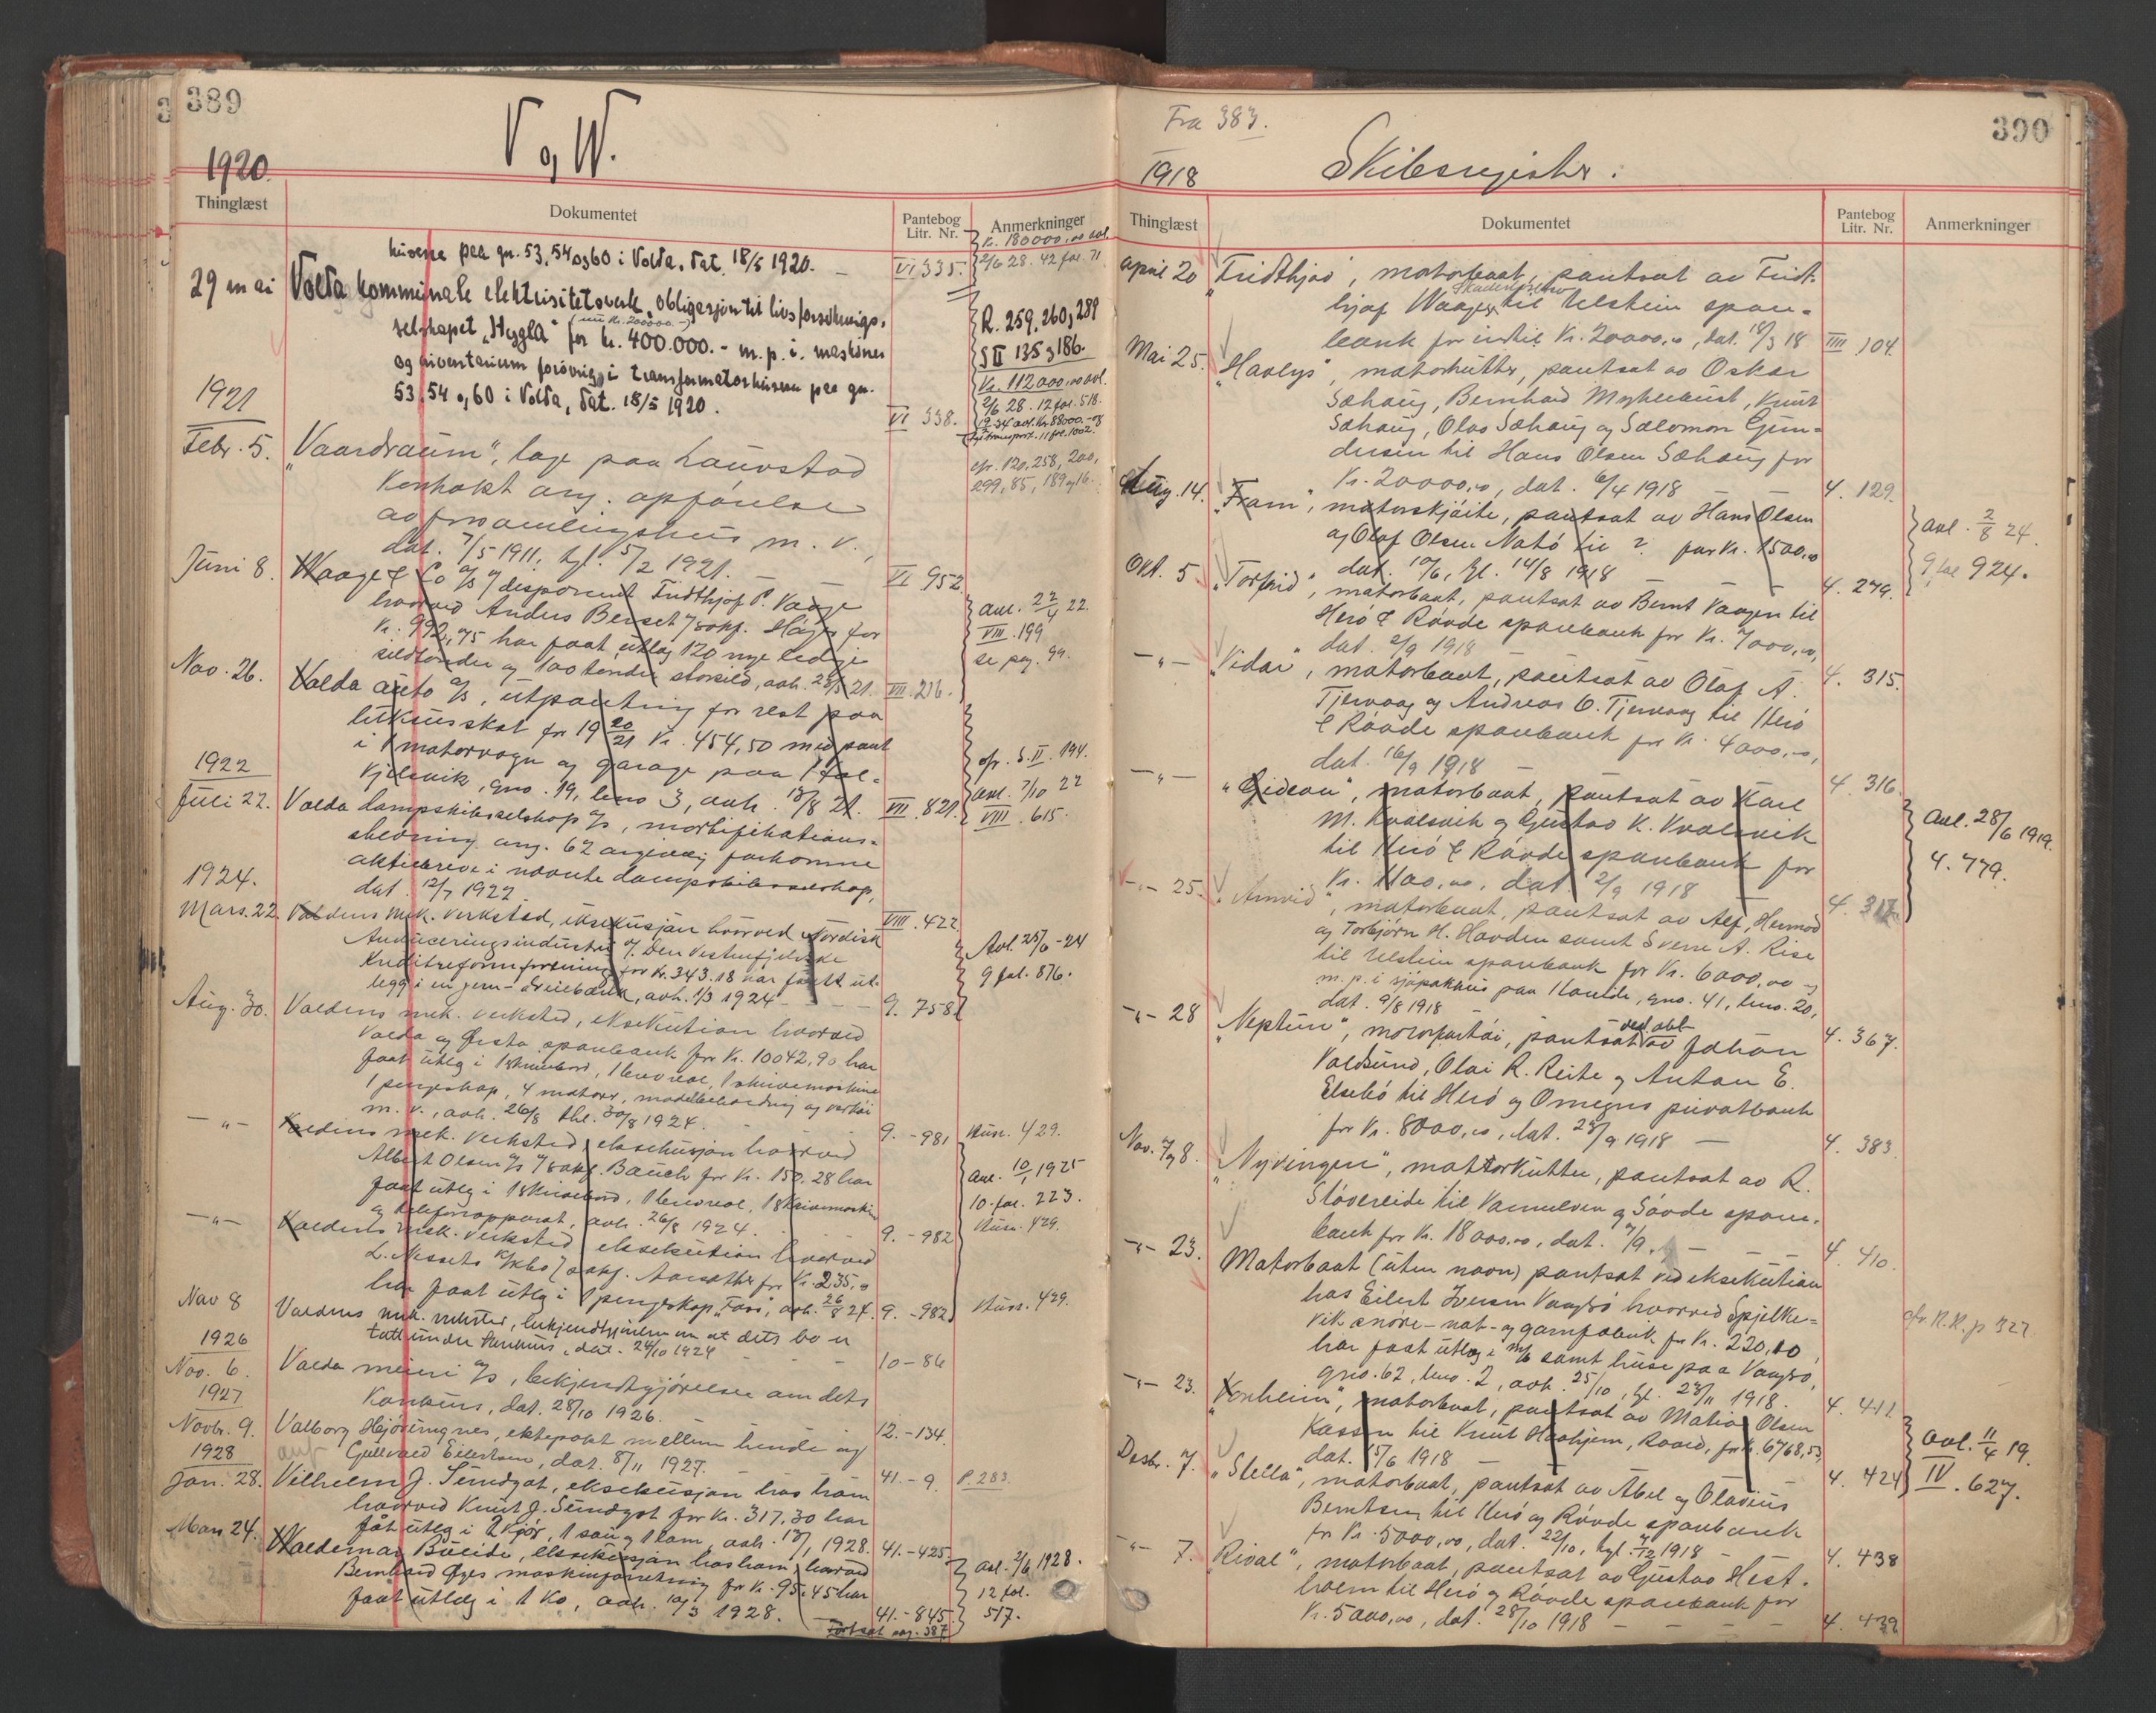 389
V og W.
1920
Thinglæst
Dokumentet
Pantebog
Litr. Nr.
Anmerkninger
husene paa gn. 53, 54 og 60 i Volda, dat. 18/5 1920. —
VI 335.
Kr. 180000,00 avl.
2/6 28. 42 fol. 71
29 mai
Volda kommunale elektrisitetsverk, obligasjon til livsforsikrings-
selskapet „Hygea" for kr. 400.000.- m. p. i. maskiner
og inventarium forøvrig i transformatorhusene paa gn.
53, 54 og 60 i Volda, dat. 18/5 1920.
VI 338.
R. 259, 260, 289
S II 135 og 186.
Kr. 112000,00 avl.
2/6 28. 12 fol. 518.
1921
Febr. 5.
„Vaardraum", lag paa Laurstad
Kontrakt ang. opførelse
av forsamlingshus m. v.,
dat. 7/5 1911, tgl. 5/2 1921. —
VI 952.
cfr. 120, 258, 200,
299, 85, 189 og 16.
Juni 8.
Waage & Co a/s v/ disponent Fridthjof P. Vaage
hvorved Anders Berset v/sakf. Høger for
Kr. 992,75 har faat utlæg 120 nye ledige
sildtønder og 100 tønder storsild, avh. 28/5 21.
VII. 216.
avl. 22/4 22.
VIII. 199
se pag. 99.
Nov. 26.
Volda auto a/s, utpantning for rest paa
luksusskat for 19 20/21 Kr. 454,50 med pant
i 1 motorvogn og garage paa
Kjelsvik, gno. 19, bno 3, avh. 18/8 21.
VII. 821.
cfr. S. II. 194.
avl. 7/10 22
VIII. 615.
1922
Juli 22.
Volda dampskibsselskap a/s, mortifikations-
bevilning ang. 62 angivelig forkomne
aktiebreve i nævnte dampskibsselskap,
dat. 12/7 1922
VIII. 422
1924.
Mars. 22.
Voldens mek. verkstad, eksekusjon hvorved Nordisk
Annonceringsindustri v/ Den Vestenfjelske
Kreditreformforening for kr. 343.18 har faatt ut-
legg i en jern-dreiebænk, avh. 1/3 1924 — — — —
9. 758
Avl. 25/6 - 24
9 fol. 876.
Aug. 30.
Voldens mek. verksted, eksekution hvorved
Volda og Ørsta sparebank for Kr. 10042,90 har
faat utlæg i 1 skrivebord, 1 lenestol, 1 skrivemaskine
1 pengeskap, 4 motorer, modelbeholdning og verktøi
m. v., avh. 26/8 thl. 30/8 1924.
9. - 981
Kurs. 429.
— „ —
Voldens mek. verksted, eksekusjon hvorved
Albert Olsen a/s v/sakf. Bauch for Kr. 150.28 har
faat utlæg i 1 skrivebord, 1 lenestol, 1 skrivemaskin
og telefonapparat, avh. 26/8 1924.
9. - 982
avl. 10/1 1925
10. fol. 223.
Kurs. 429.
— „ —
Voldens mek. verksted, eksekution hvorved
L. Nessets v/sakf. Aarsæther for Kr. 235,0
har faat utlæg i 1 pengeskap „Fass", avh. 26/8 24.
9. - 982
Kurs. 429.
Nov 8
Voldens mek. verksted, bekjendtgjørelse om at dets bo er
tatt under konkurs, dat. 24/10 1924
10 - 86
1926
Nov. 6.
Volda meieri a/s, bekjendtgjørelse om dets
Konkurs, dat. 28/10 1926.
12. - 134.
1927
Novbr. 9.
Valborg Hjøringnes, ektepakt mellem hende og
Gullvald Eilertsen, dat. 8/11 1927.
41. - 9.
P. 283.
1928
Jan. 28.
Vilhelm J. Sundgot, eksekusjon hos ham
hvorved Knut J. Sundgot for Kr. 317.30 har
fåt utlæg i 2 kjør, 1 sau og 1 lam, avh. 13/1 1928.
41. - 425
Mars 24.
Valdemar Bueide, eksekusjon hos ham, hvorved
Bernhard Øyes maskinforretning for Kr. 95.45 har
faat utlæg i 1 Ko, avh. 10/3 1928.
41. - 845.
avl. 2/6 1928.
12 fol.
517.
Fortsat pag. 387
Fra 383.
390
1918
Skibsregister.
Thinglæst
Dokumentet
Pantebog
Litr. Nr.
Anmerkninger
april 20
„Fridthjov", motorbaat, pantsat av Fridt-
hjof Waage til Ulstein spare-
bank for indtil Kr. 20000,00, dat. 18/3 18
IIII 104.
Mai 25.
„Havlys", motorkutter, pantsat av Oskar
Sæhaug, Bernhard Myklebust, Knut
Sæhaug, Olav Sæhaug og Salomon Gun-
dersen til Hans Olsen Sæhaug for
Kr. 20000,00, dat. 6/4 1918
4. 129.
Aug. 14.
„Fram", motorskjøite, pantsat av Hans Olsen
og Olaf Olsen Natø til ? for Kr. 1500,00
dat. 10/6, tgl. 14/8 1918
4. 279.
avl. 2/8 24.
9 fol 924.
Okt. 5
„Torfrid", motorbaat, pantsat av Bernt Vaagen til
Herø & Røvde sparebank for Kr. 7000,00,
dat. 2/9 1918
4. 315.
— „ —
„Vidar", motorbaat, pantsat av Olaf A.
Tjervaag og Andreas O. Tjervaag til Herø
& Røvde sparebank for Kr. 4000,00,
dat. 16/9 1918 —
4. 316.
— „ —
„Gideon", motorbaat, pantsat av Karl
M. Kvalsvik og Gustav K. Kvalsvik
til Herø & Røvde sparebank for
Kr. 1100,00, dat. 2/9 1918
4. 317.
avl. 28/6 1919.
4. 779.
— „ — 25.
„Arnvid", motorbaat, pantsat av Alf, Hermod
og Torbjørn H. Hovden samt Sverre A. Rise
til Ulstein sparebank for Kr. 6000,00 og
m. p. i sjøpakhus paa Hareide, gno. 41, bno. 20,
dat. 9/8 1918
4. 367.
— „ — 28
„Neptun", motorfartøi, pantsat av Johan
Voldsund, Olai R. Reite og Anton E.
Elsebø til Herø og Omegns privatbank
for Kr. 8000,00, dat. 28/9 1918 —
4. 383.
Nov. 7 og 8.
„Nyvingen", motorkutter, pantsat av R.
Støvereide til Vanylven og Søvde spare-
bank for Kr. 18000,00, dat. 7/9. —
4. 410.
— „ — 23.
Motorbaat (uten navn) pantsat ved eksekution
hos Eilert Iversen Vaagsø hvorved Spjelke-
vik snøre- not- og garnfabrik for Kr. 220,80
har faat utlæg i m/b samt huse paa Vaagsø,
gno. 62, bno. 2, avh. 25/10, tgl. 23/11 1918.
4. 411
cfr. R. R. p 327
— „ — 23.
„Vonheim", motorbaat, pantsat av Matias Olsen
Kassen til Knut Haahjem, Roald, for Kr. 6768,53,
dat. 15/6 1918 —
4. 424
avl. 11/4 19.
IV. 627.
Desbr. 7.
„Stella", motorbaat, pantsat av Abel og Olavius
Berntsen til Herø og Røvde sparebank
for Kr. 5000,00, dat. 22/10, tgl. 7/12 1918 —
4. 438
— „ — 7.
„Rival", motorbaat, pantsat av Gustav Hest-
holm til Herø og Røvde sparebank for
Kr. 5000,00, dat. 28/10 1918 — — — —
4. 439